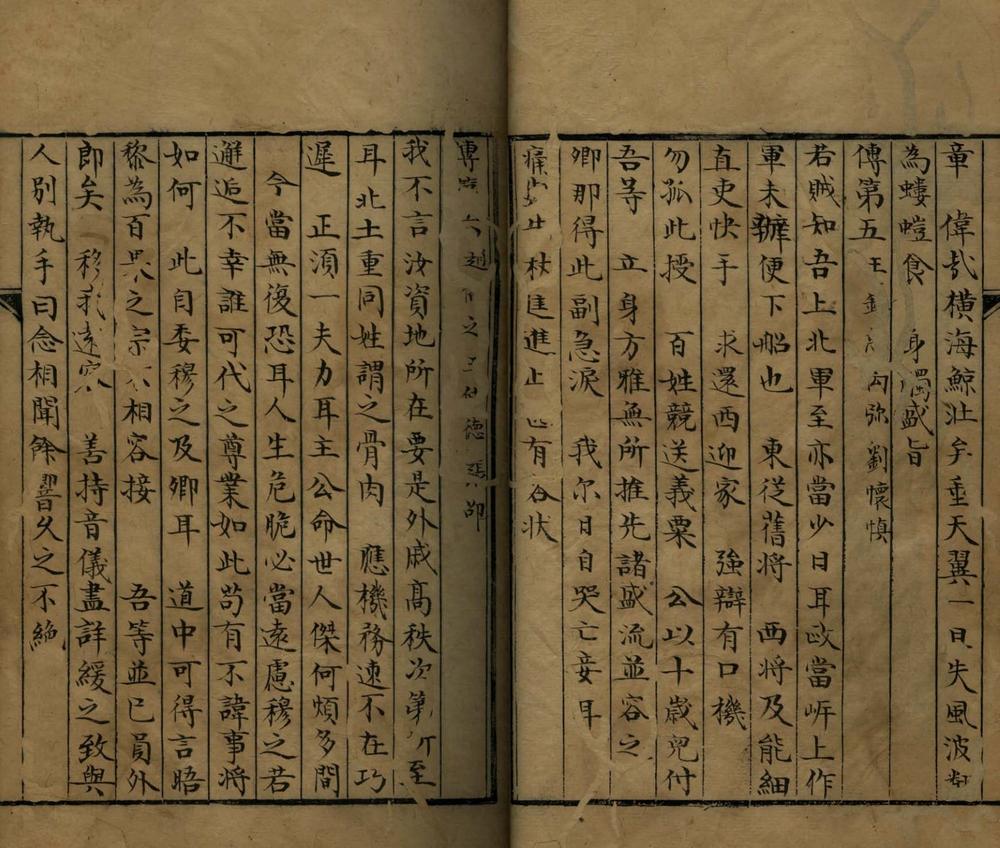 章　偉哉横海鯨壯矣垂天翼一旦失風波翻
為螻螘食　身
傳第五　王　劉懷慎
若賊知吾上北軍至亦當少日耳政當岍上作
軍未辦便下船也　東従舊將　西將及能細
直吏快手　求還西迎家　強辯有口機
勿孤此授　百姓競送義粟　公以十歲兒付
吾等　立身方雅無所推先諸盛流並容之
卿那得此副急淚　我尔日自哭亡妾耳
杖進進止　有名状
傳　之　德
我不言汝資地所在要是外戚高秩次第所至
耳北土重同姓謂之骨肉　應機務速不在巧
遲　正湏一夫力耳主公命世人傑何煩多間
今當無復恐耳人生危脆必當遠慮穆之若
邂逅不幸誰可代之尊業如此苟有不諱事將
如何　此自委穆之及卿耳　道中可得言晤
黎為百果之宗不相容接　吾等並已員外
郎矣　移我遠客　善持音儀盡詳緩之致與
人別執手曰念相聞餘響久之不絶